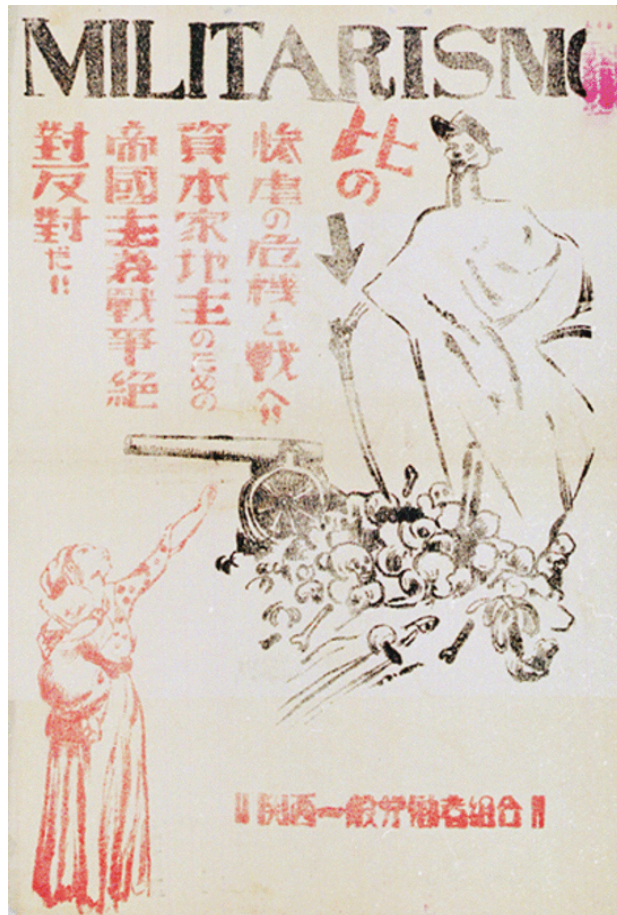 MILITARISMO
此の
惨虐の危機と戦へ!!
資本家地主のための
帝國主義戰爭絶
對反對だ!!
!!関西一般労働者組合!!